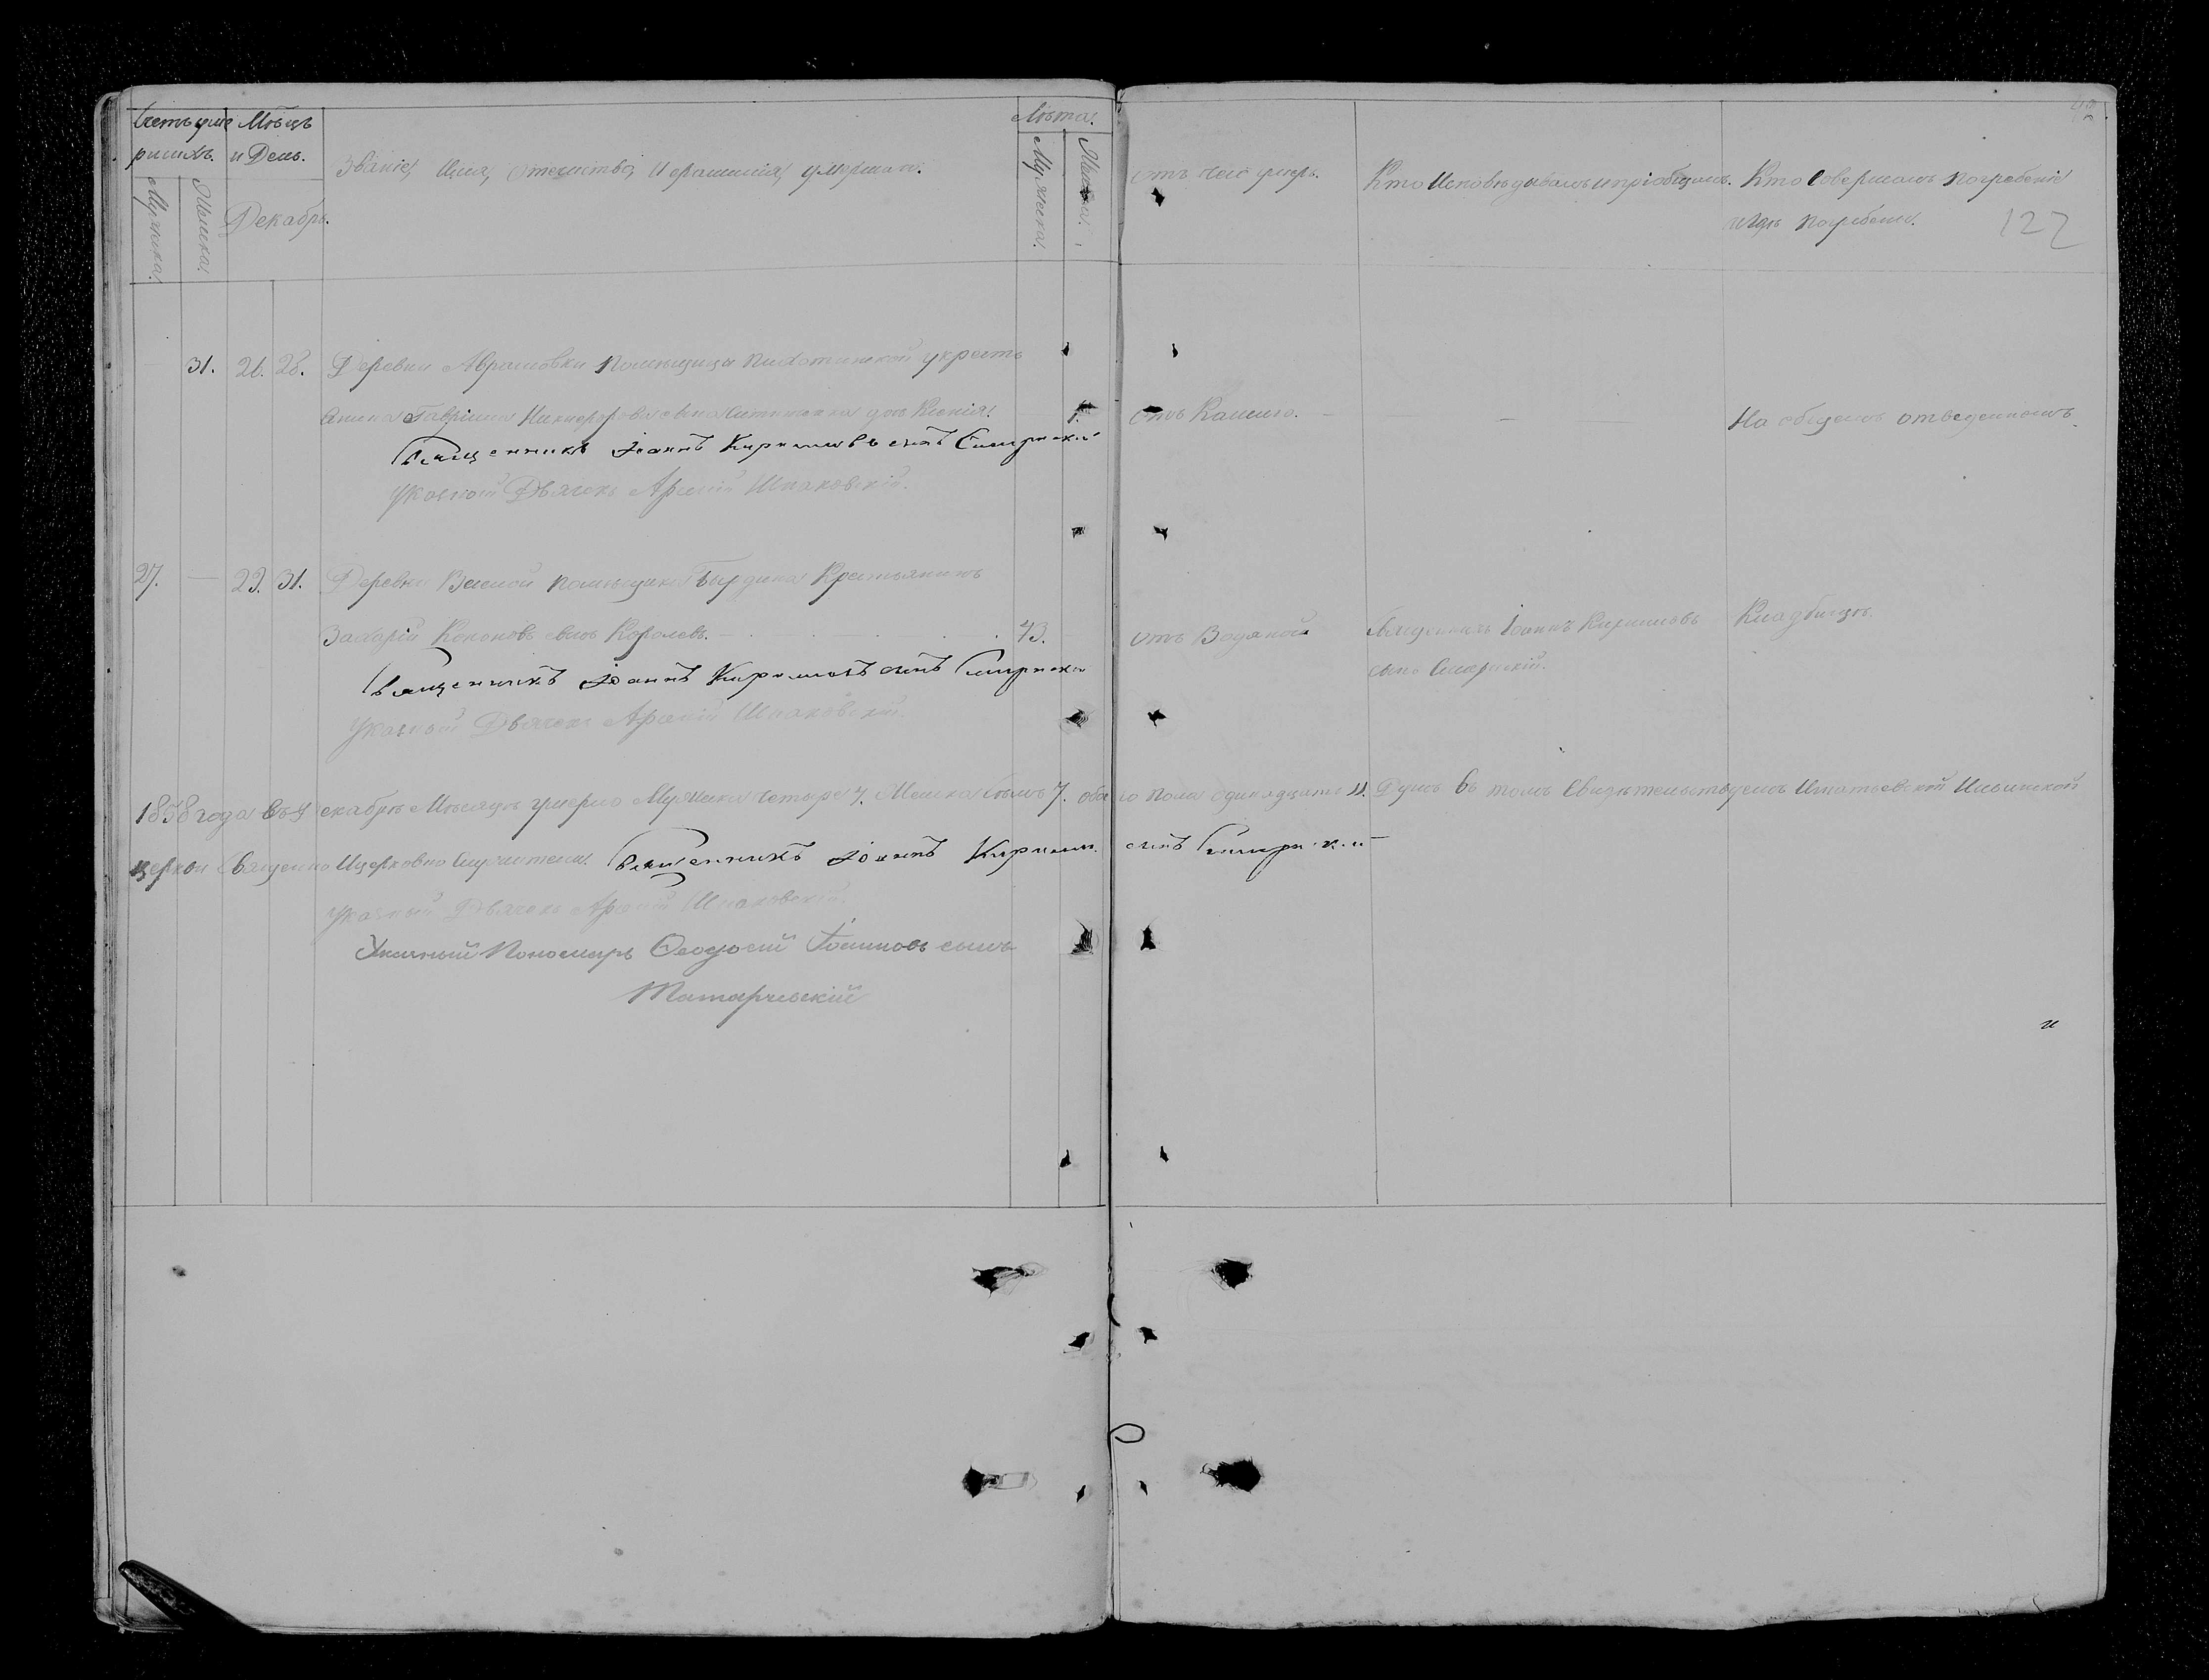 Счетъ уме Мѣсцъ
ршихъ. и День.
Мужеска. Женска. Декабрь.
Званіе, Имя, Отечество, и Фамилія, умершаго.
Лѣта.
Мужеска. Женска.
отъ чего умеръ.
Кто Исповѣдывалъ и пріобщалъ.
Кто Совершалъ погребеніе
и гдѣ погребены.
122
— 31. 26. 28. Деревни Аврамовки помѣщицы крестъ
Гавріила Никифорова сына дочь Ксенія. 1. отъ Кашлю. — — — На общемъ отведенномъ
Священникъ Іоаннъ Кирилловъ сынъ
Указной Дьячекъ Арсеній Шпаковскій.
27. — 29. 31. Деревни помѣщика Крестьянинъ
Захарій Кононовъ сынъ Королевъ. — 43. отъ Водяной Священникъ Іоаннъ Кирилловъ Кладбищѣ.
сынъ
Священникъ Іоаннъ Кирилловъ сынъ
Указной Дьячекъ Арсеній Шпаковскій.
1858 года въ Декабрѣ Мѣсяцѣ умерло Мужеска четыре 4. Женска семь 7. обаго пола одинадцать 11. Душъ въ томъ Свидѣтельствуемъ Ильинской
церкви Священно и церковно служители. Священникъ Іоаннъ Кирилл. сынъ
Указный Дьячекъ Арсеній Шпаковскій.
Указный Пономарь Ѳеодосій сынъ